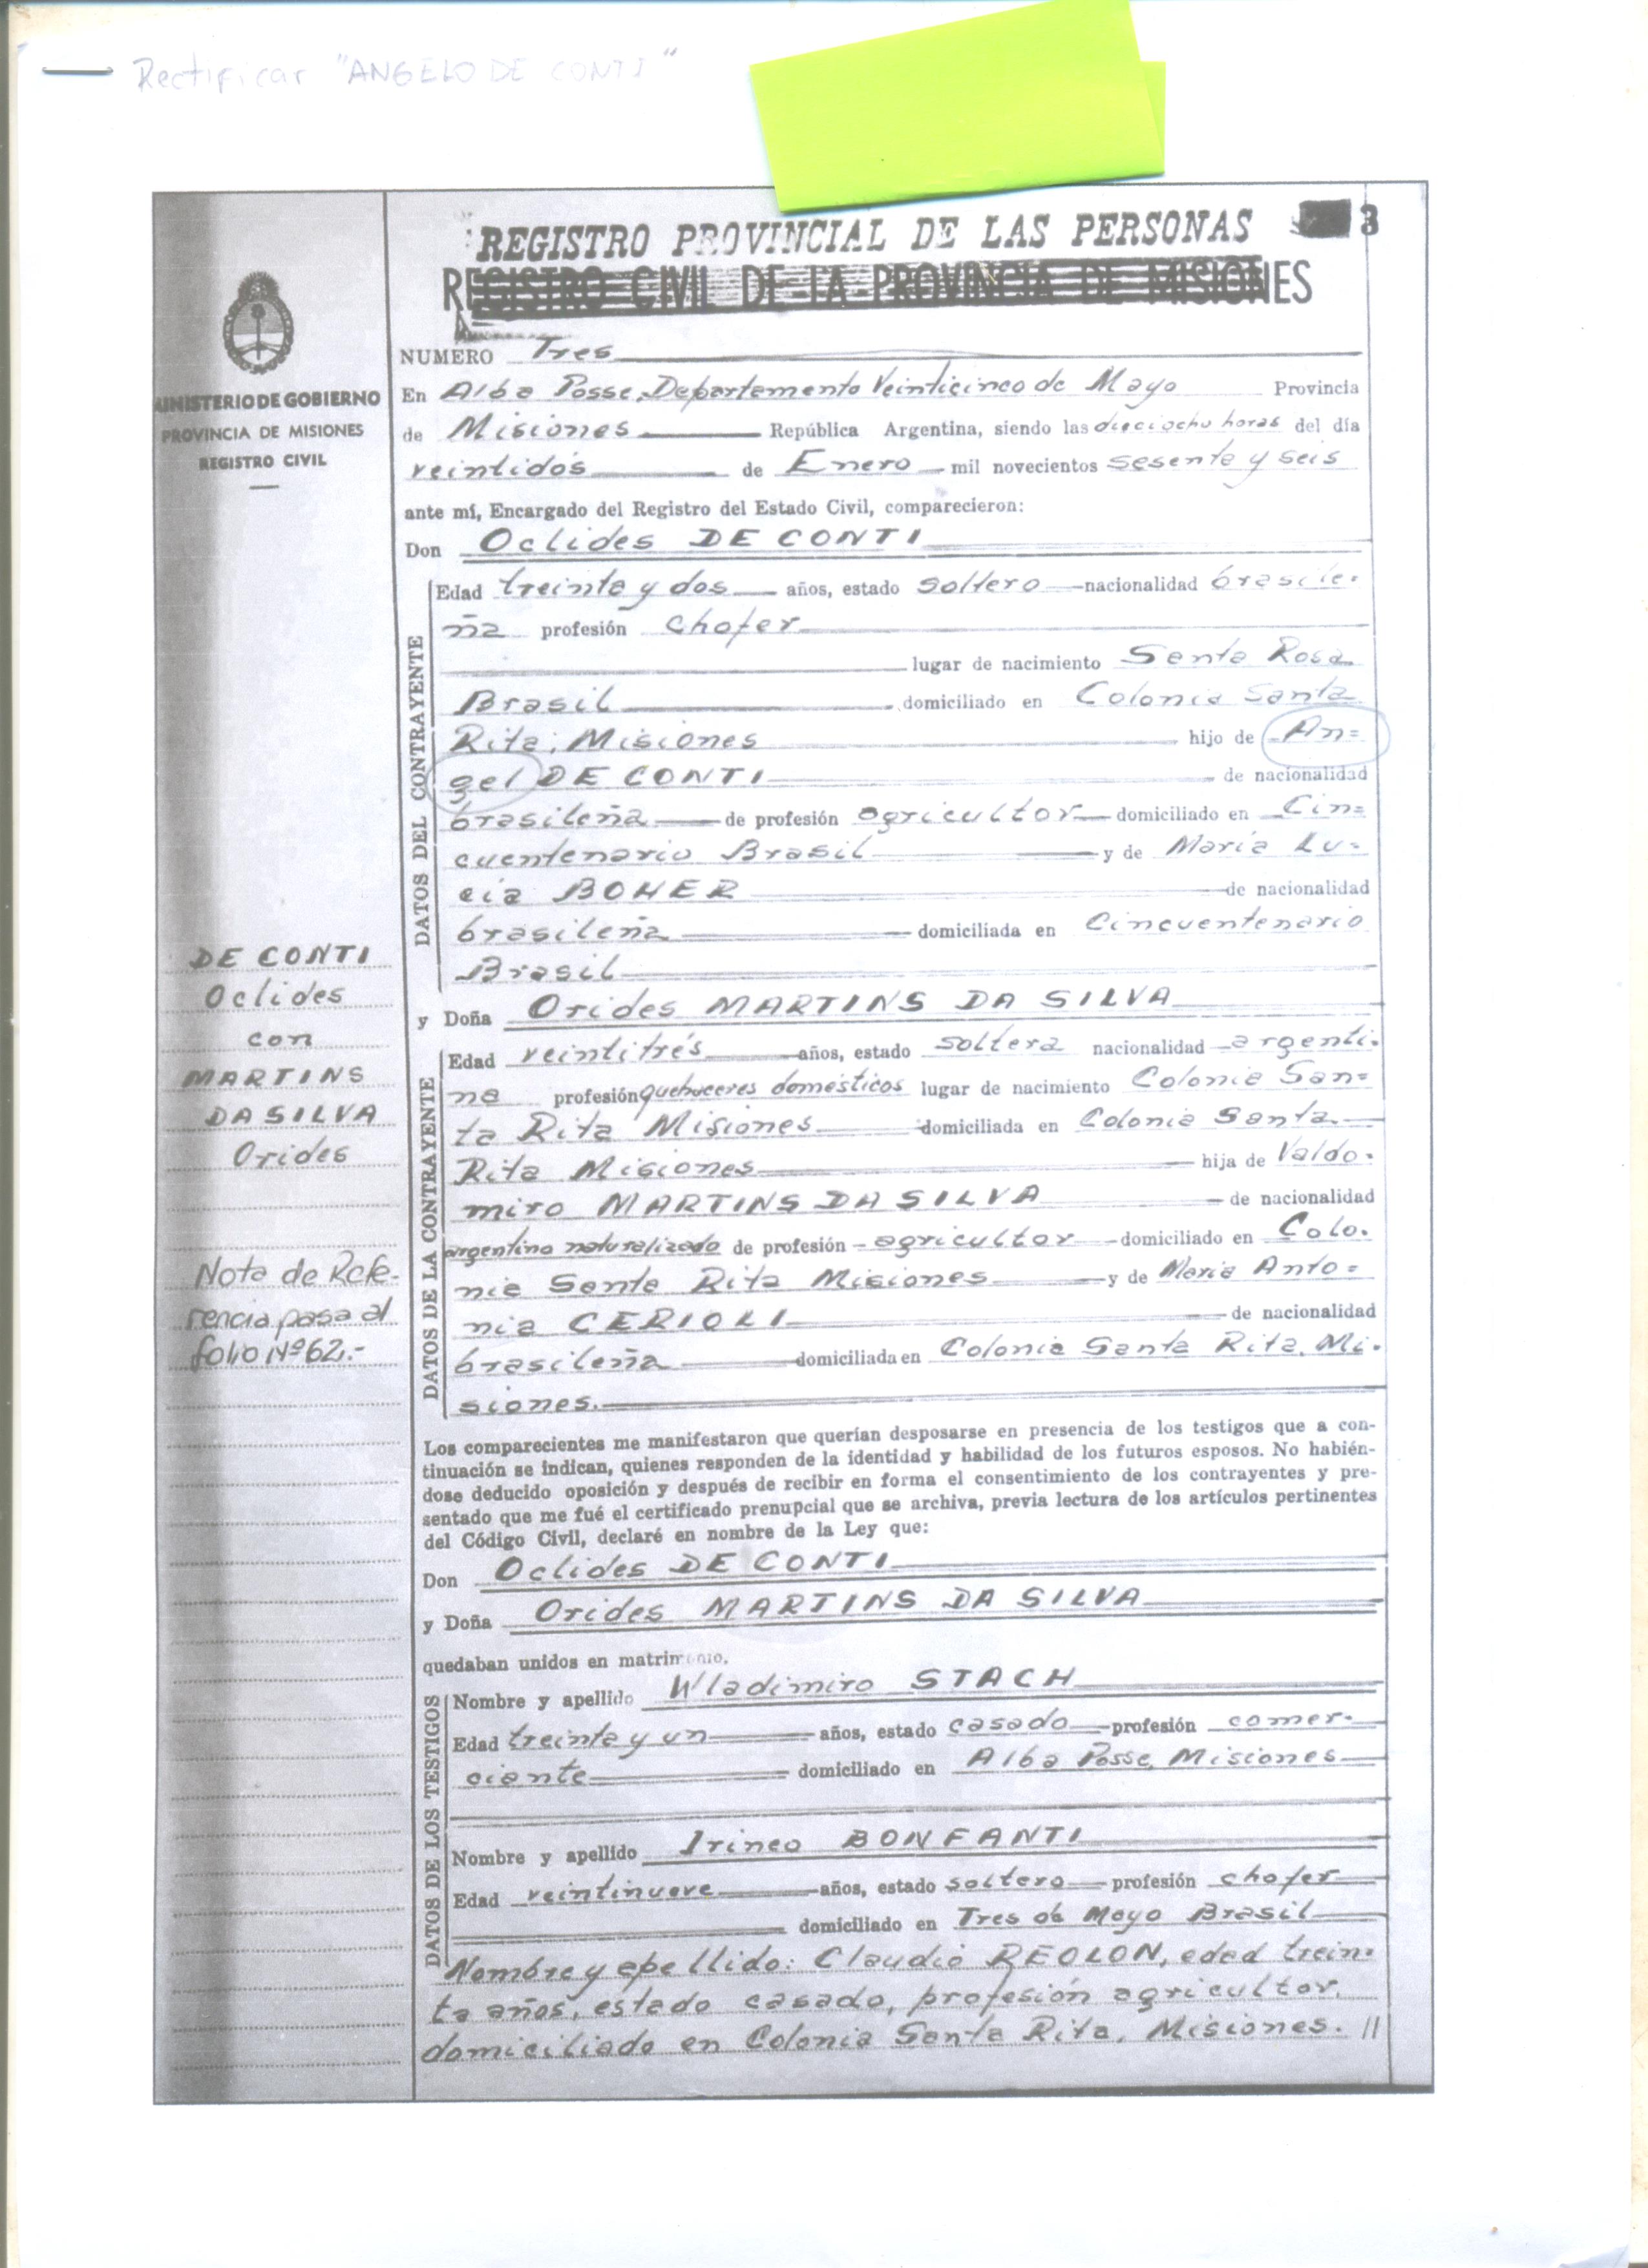 Rectificar "ANGELO DE CONTI"
REGISTRO PROVINCIAL DE LAS PERSONAS 3
REGISTRO CIVIL DE LA PROVINCIA DE MISIONES
MINISTERIO DE GOBIERNO
PROVINCIA DE MISIONES
REGISTRO CIVIL
NUMERO Tres
En Alba Posse, Departamento Veinticinco de Mayo Provincia
de Misiones República Argentina, siendo las dieciocho horas del día
veintidós de Enero mil novecientos sesenta y seis
ante mí, Encargado del Registro del Estado Civil, comparecieron:
Don Oclides DE CONTI
DATOS DEL CONTRAYENTE
Edad treinta y dos años, estado soltero nacionalidad brasile-
ña profesión chofer
lugar de nacimiento Santa Rosa
Brasil domiciliado en Colonia Santa
Rita, Misiones hijo de An=
gel DE CONTI de nacionalidad
brasileña de profesión agricultor domiciliado en Cin=
cuentenario Brasil y de María Lu-
cia BOHER de nacionalidad
brasileña domiciliada en Cincuentenario
Brasil
y Doña Orides MARTINS DA SILVA
DATOS DE LA CONTRAYENTE
Edad veintitrés años, estado soltera nacionalidad argenti-
na profesión quehaceres domésticos lugar de nacimiento Colonia San=
ta Rita Misiones domiciliada en Colonia Santa
Rita Misiones hija de Valdo-
miro MARTINS DA SILVA de nacionalidad
argentino naturalizado de profesión agricultor domiciliado en Colo-
nia Santa Rita Misiones y de Maria Anto=
nia CERIOLI de nacionalidad
brasileña domiciliada en Colonia Santa Rita, Mi-
siones.
DE CONTI
Oclides
con
MARTINS
DA SILVA
Orides
Nota de Refe-
rencia pasa al
folio Nº 62.-
Los comparecientes me manifestaron que querían desposarse en presencia de los testigos que a con-
tinuación se indican, quienes responden de la identidad y habilidad de los futuros esposos. No habién-
dose deducido oposición y después de recibir en forma el consentimiento de los contrayentes y pre-
sentado que me fué el certificado prenupcial que se archiva, previa lectura de los artículos pertinentes
del Código Civil, declaré en nombre de la Ley que:
Don Oclides DE CONTI
y Doña Orides MARTINS DA SILVA
quedaban unidos en matrimonio.
DATOS DE LOS TESTIGOS
Nombre y apellido Wladimiro STACH
Edad treinta y un años, estado casado profesión comer-
ciante domiciliado en Alba Posse, Misiones
Nombre y apellido Irineo BONFANTI
Edad veintinueve años, estado soltero profesión chofer
domiciliado en Tres de Mayo Brasil
Nombre y apellido: Claudio REOLON, edad trein-
ta años, estado casado, profesión agricultor,
domiciliado en Colonia Santa Rita, Misiones. //